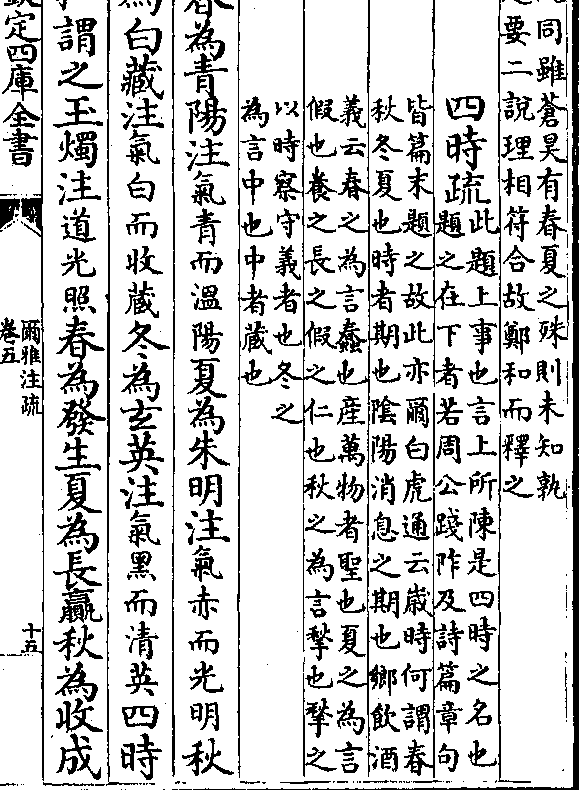 同雖蒼昊有春夏之殊則未知孰
要二說理相符合故鄭和而釋之
四時疏此題上事也言上所陳是四時之名也
題之在下者若周公踐阼及詩篇章句
皆篇末題之故此亦爾白虎通云歲時何謂春
秋冬夏也時者期也隂陽消息之期也鄉飲酒
義云春之為言蠢也産萬物者聖也夏之為言
假也養之長之假之仁也秋之為言揫也揫之
以時察守義者也冬之
為言中也中者藏也
春為青陽注氣青而溫陽夏為朱明注氣赤而光明秋
為白藏注氣白而收藏冬為玄英注氣黑而清英四時
謂之玉燭注道光照春為發生夏為長贏秋為收成
欽定四庫全書
爾雅注疏
卷五
十五